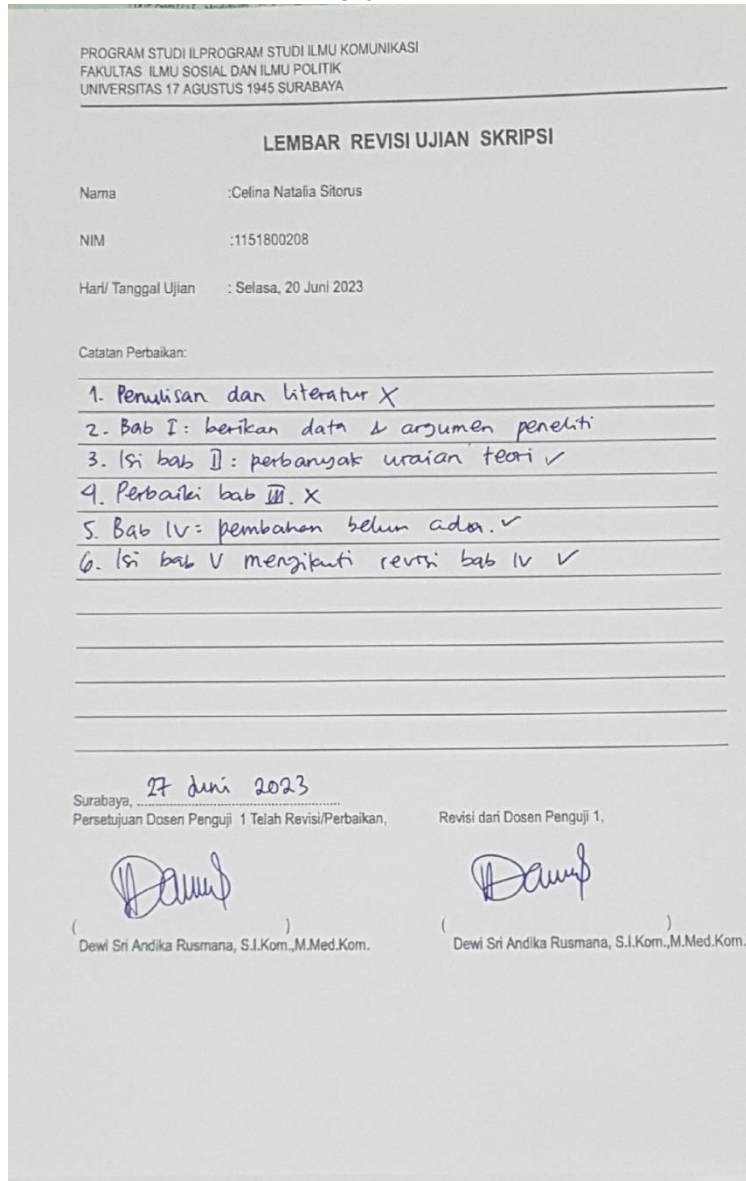 PROGRAM STUDI ILPROGRAM STUDI ILMU KOMUNIKASI
FAKULTAS ILMU SOSIAL DAN ILMU POLITIK
UNIVERSITAS 17 AGUSTUS 1945 SURABAYA
LEMBAR REVISI UJIAN SKRIPSI
Nama :Celina Natalia Sitorus
NIM :1151800208
Hari/ Tanggal Ujian : Selasa, 20 Juni 2023
Catatan Perbaikan:
1. Penulisan dan literatur X
2. Bab I : berikan data & argumen peneliti
3. Isi bab II : perbanyak uraian teori ✓
4. Perbaiki bab III. X
5. Bab IV : pembahan belum ada. ✓
6. Isi bab V mengikuti revisi bab IV ✓
Surabaya, 27 Juni 2023
Persetujuan Dosen Penguji 1 Telah Revisi/Perbaikan, Revisi dari Dosen Penguji 1,
( ) ( )
Dewi Sri Andika Rusmana, S.I.Kom.,M.Med.Kom. Dewi Sri Andika Rusmana, S.I.Kom.,M.Med.Kom.